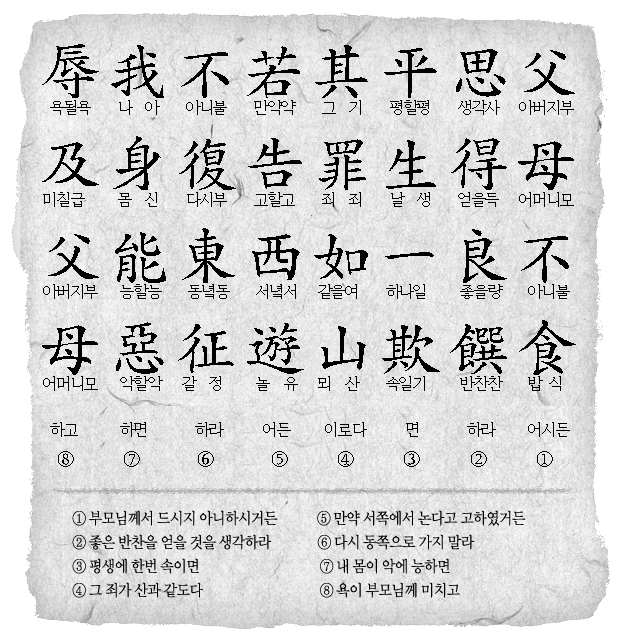 父 아버지부 母 어머니모 不 아니불 食 밥 식 어시든 ①
思 생각사 得 얻을득 良 좋을량 饌 반찬찬 하라 ②
平 평할평 生 날 생 一 하나일 欺 속일기 면 ③
其 그 기 罪 죄 죄 如 같을여 山 뫼 산 이로다 ④
若 만약약 告 고할고 西 서녘서 遊 놀 유 어든 ⑤
不 아니불 復 다시부 東 동녘동 征 갈 정 하라 ⑥
我 나 아 身 몸 신 能 능할능 惡 악할악 하면 ⑦
辱 욕될욕 及 미칠급 父 아버지부 母 어머니모 하고 ⑧
① 부모님께서 드시지 아니하시거든
② 좋은 반찬을 얻을 것을 생각하라
③ 평생에 한번 속이면
④ 그 죄가 산과 같도다
⑤ 만약 서쪽에서 논다고 고하였거든
⑥ 다시 동쪽으로 가지 말라
⑦ 내 몸이 악에 능하면
⑧ 욕이 부모님께 미치고